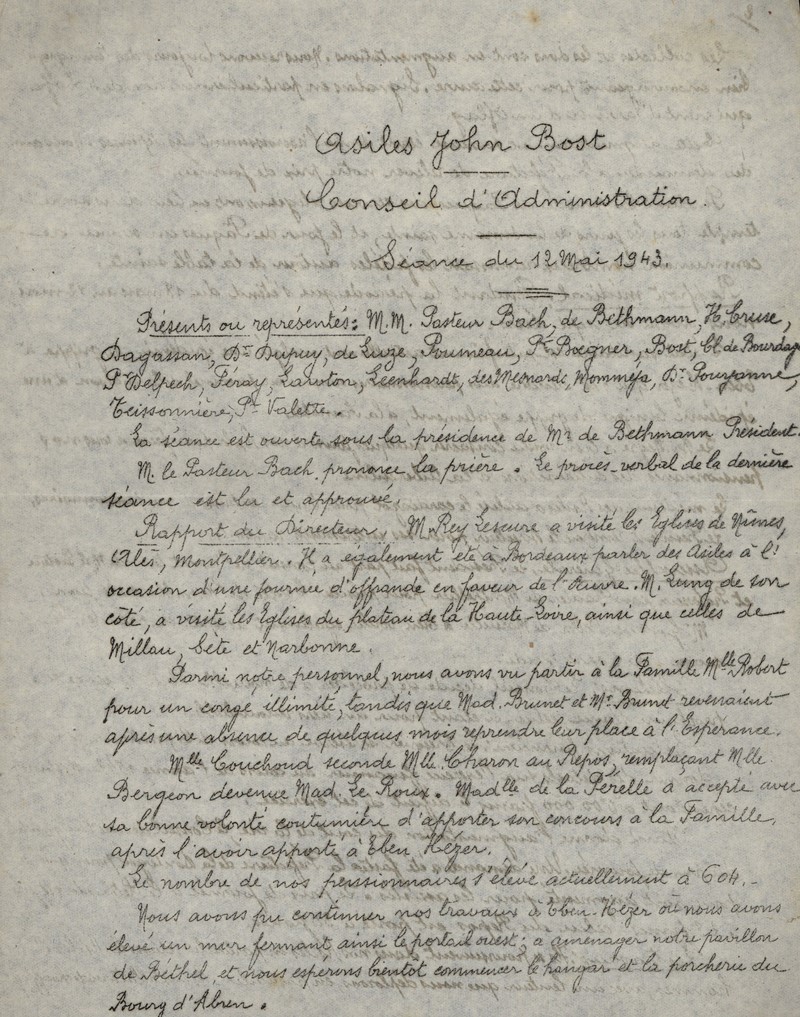 Asiles John Bost
Conseil d'Administration.
Séance du 12 Mai 1943.
Présents ou représentés: M.M. Pasteur Bach, de Bethmann, H. Cruse,
Dagassan, Dr Dupuy, de Luze, Poumeau, Pr Bœgner, Bost, Cl. de Bourdage
Pr Delpech, Féray, Lawton, Leenhardt, des Mesnards, Momméja, Dr Pouyanne,
Teissonnière, Pr Valette.
La séance est ouverte sous la présidence de Mr de Bethmann Président.
M. le Pasteur Bach prononce la prière. Le procès-verbal de la dernière
séance est lu et approuvé.
Rapport du Directeur, M. Rey Lescure a visité les Eglises de Nîmes,
Alès, Montpellier. Il a également été à Bordeaux parler des Asiles à l'
occasion d'une journée d'offrande en faveur de l'Œuvre. M. Lung de son
côté, a visité les Eglises du plateau de la Haute-Loire, ainsi que celles de
Millau, Cète et Narbonne.
Parmi notre personnel, nous avons vu partir à la Famille Mlle Robert
pour un congé illimité, tandis que Mad. Brunet et Mr Brunet revenaient
après une absence de quelques mois reprendre leur place à l'Espérance.
Mlle Couchoud seconde Mlle Charon au Repos, remplaçant Mlle
Bergeon devenue Mad. Le Roux. Madlle de la Perelle a accepté avec
sa bonne volonté coutumière d'apporter son concours à la Famille,
après l'avoir apporté à Eben Hézer.
Le nombre de nos pensionnaires s'élève actuellement à 604.-
Nous avons pu continuer nos travaux à Eben-Hézer où nous avons
élevé un mur fermant ainsi le portail ouest; à aménager notre pavillon
de Béthel, et nous espérons bientôt commencer le hangar et la porcherie du
Bourg d'Abren.